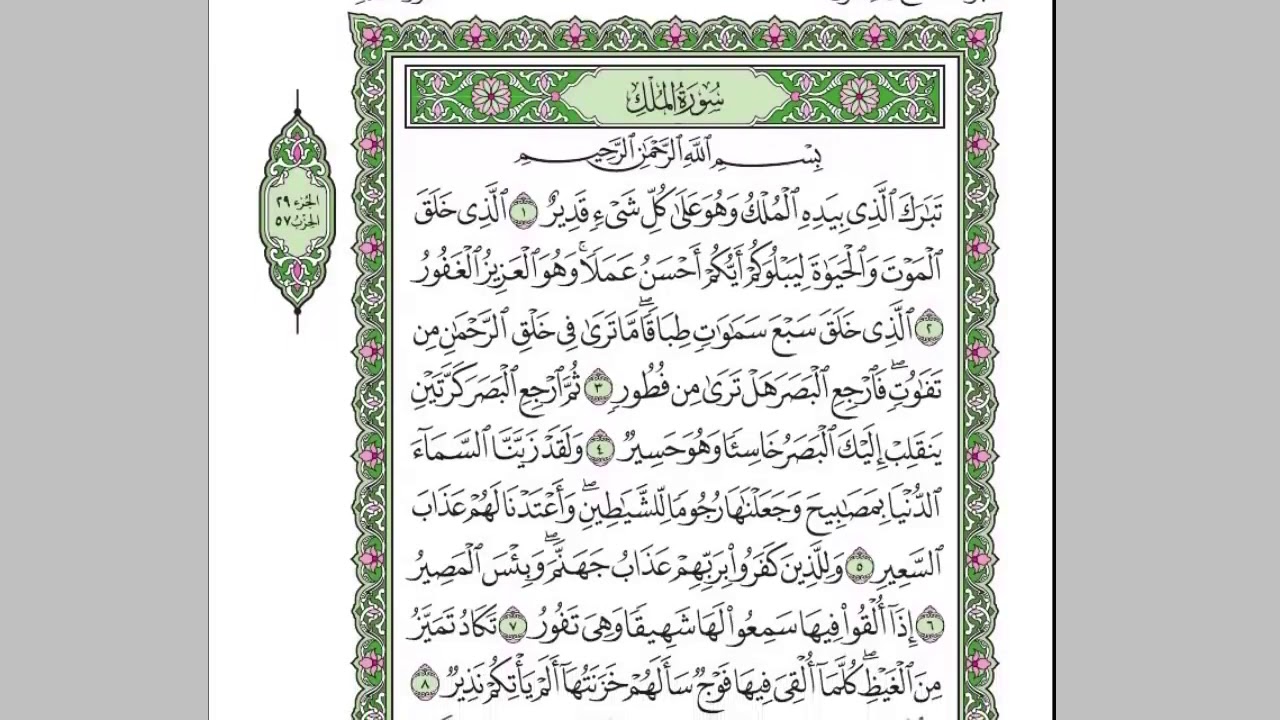 سُورَةُ المُلْكِ
بِسْمِ ٱللَّهِ ٱلرَّحْمَٰنِ ٱلرَّحِيمِ
الجزء ٢٩
الحزب ٥٧
تَبَٰرَكَ ٱلَّذِى بِيَدِهِ ٱلْمُلْكُ وَهُوَ عَلَىٰ كُلِّ شَىْءٍ قَدِيرٌ ١ ٱلَّذِى خَلَقَ
ٱلْمَوْتَ وَٱلْحَيَوٰةَ لِيَبْلُوَكُمْ أَيُّكُمْ أَحْسَنُ عَمَلًا ۚ وَهُوَ ٱلْعَزِيزُ ٱلْغَفُورُ
٢ ٱلَّذِى خَلَقَ سَبْعَ سَمَٰوَٰتٍ طِبَاقًا ۖ مَّا تَرَىٰ فِى خَلْقِ ٱلرَّحْمَٰنِ مِن
تَفَٰوُتٍ ۖ فَٱرْجِعِ ٱلْبَصَرَ هَلْ تَرَىٰ مِن فُطُورٍ ٣ ثُمَّ ٱرْجِعِ ٱلْبَصَرَ كَرَّتَيْنِ
يَنقَلِبْ إِلَيْكَ ٱلْبَصَرُ خَاسِئًا وَهُوَ حَسِيرٌ ٤ وَلَقَدْ زَيَّنَّا ٱلسَّمَآءَ
ٱلدُّنْيَا بِمَصَٰبِيحَ وَجَعَلْنَٰهَا رُجُومًا لِّلشَّيَٰطِينِ ۖ وَأَعْتَدْنَا لَهُمْ عَذَابَ
ٱلسَّعِيرِ ٥ وَلِلَّذِينَ كَفَرُوا۟ بِرَبِّهِمْ عَذَابُ جَهَنَّمَ ۖ وَبِئْسَ ٱلْمَصِيرُ
٦ إِذَآ أُلْقُوا۟ فِيهَا سَمِعُوا۟ لَهَا شَهِيقًا وَهِىَ تَفُورُ ٧ تَكَادُ تَمَيَّزُ
مِنَ ٱلْغَيْظِ ۖ كُلَّمَآ أُلْقِىَ فِيهَا فَوْجٌ سَأَلَهُمْ خَزَنَتُهَآ أَلَمْ يَأْتِكُمْ نَذِيرٌ ٨